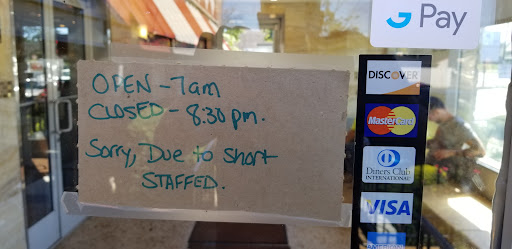 OPEN - 7am
CLOSED - 8:30 pm.
Sorry, Due to short
STAFFED.
G Pay
DISCOVER
MasterCard
Diners Club
INTERNATIONAL
VISA